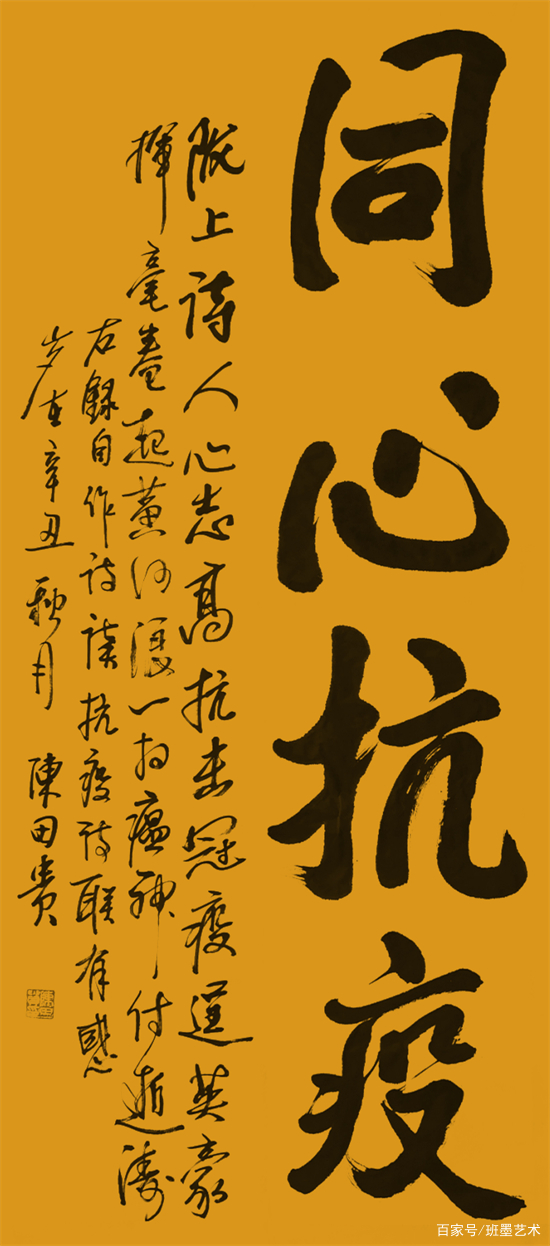 同心抗疫
陇上诗人心志高抗击冠疫逞英豪
挥毫卷起黄河浪一扫瘟神付逝涛
右录自作诗读抗疫诗联有感
岁在辛丑秋月 陈田贵
百家号/班墨艺术